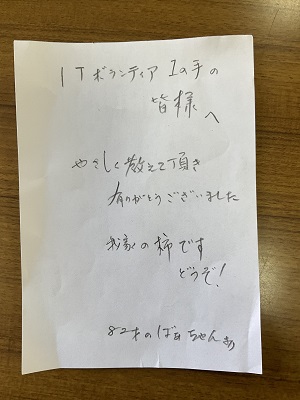 ITボランティアIの手の
皆様
へ
やさしく教えて頂き
有りがとうございました
我家の柿です
どうぞ!
82才のばあちゃんより